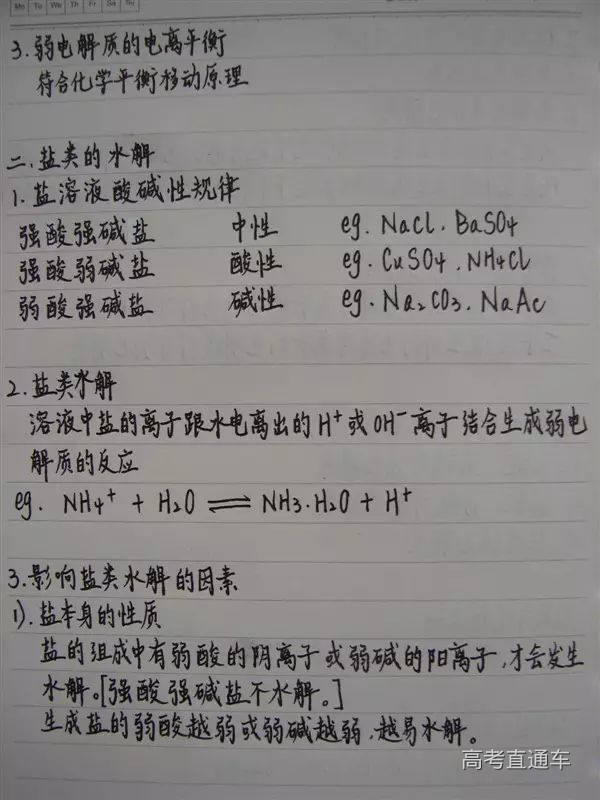 Mo Tu We Th Fr Sa Su
3.弱电解质的电离平衡
符合化学平衡移动原理
二.盐类的水解
1.盐溶液酸碱性规律
强酸强碱盐 中性 eg. NaCl. BaSO4
强酸弱碱盐 酸性 eg. CuSO4. NH4Cl
弱酸强碱盐 碱性 eg. Na2CO3. NaAc
2.盐类水解
溶液中盐的离子跟水电离出的H⁺或OH⁻离子结合生成弱电
解质的反应
eg. NH4⁺ + H2O ⇌ NH3·H2O + H⁺
3.影响盐类水解的因素
1).盐本身的性质
盐的组成中有弱酸的阴离子或弱碱的阳离子,才会发生
水解。[强酸强碱盐不水解。]
生成盐的弱酸越弱或弱碱越弱.越易水解。
高考直通车